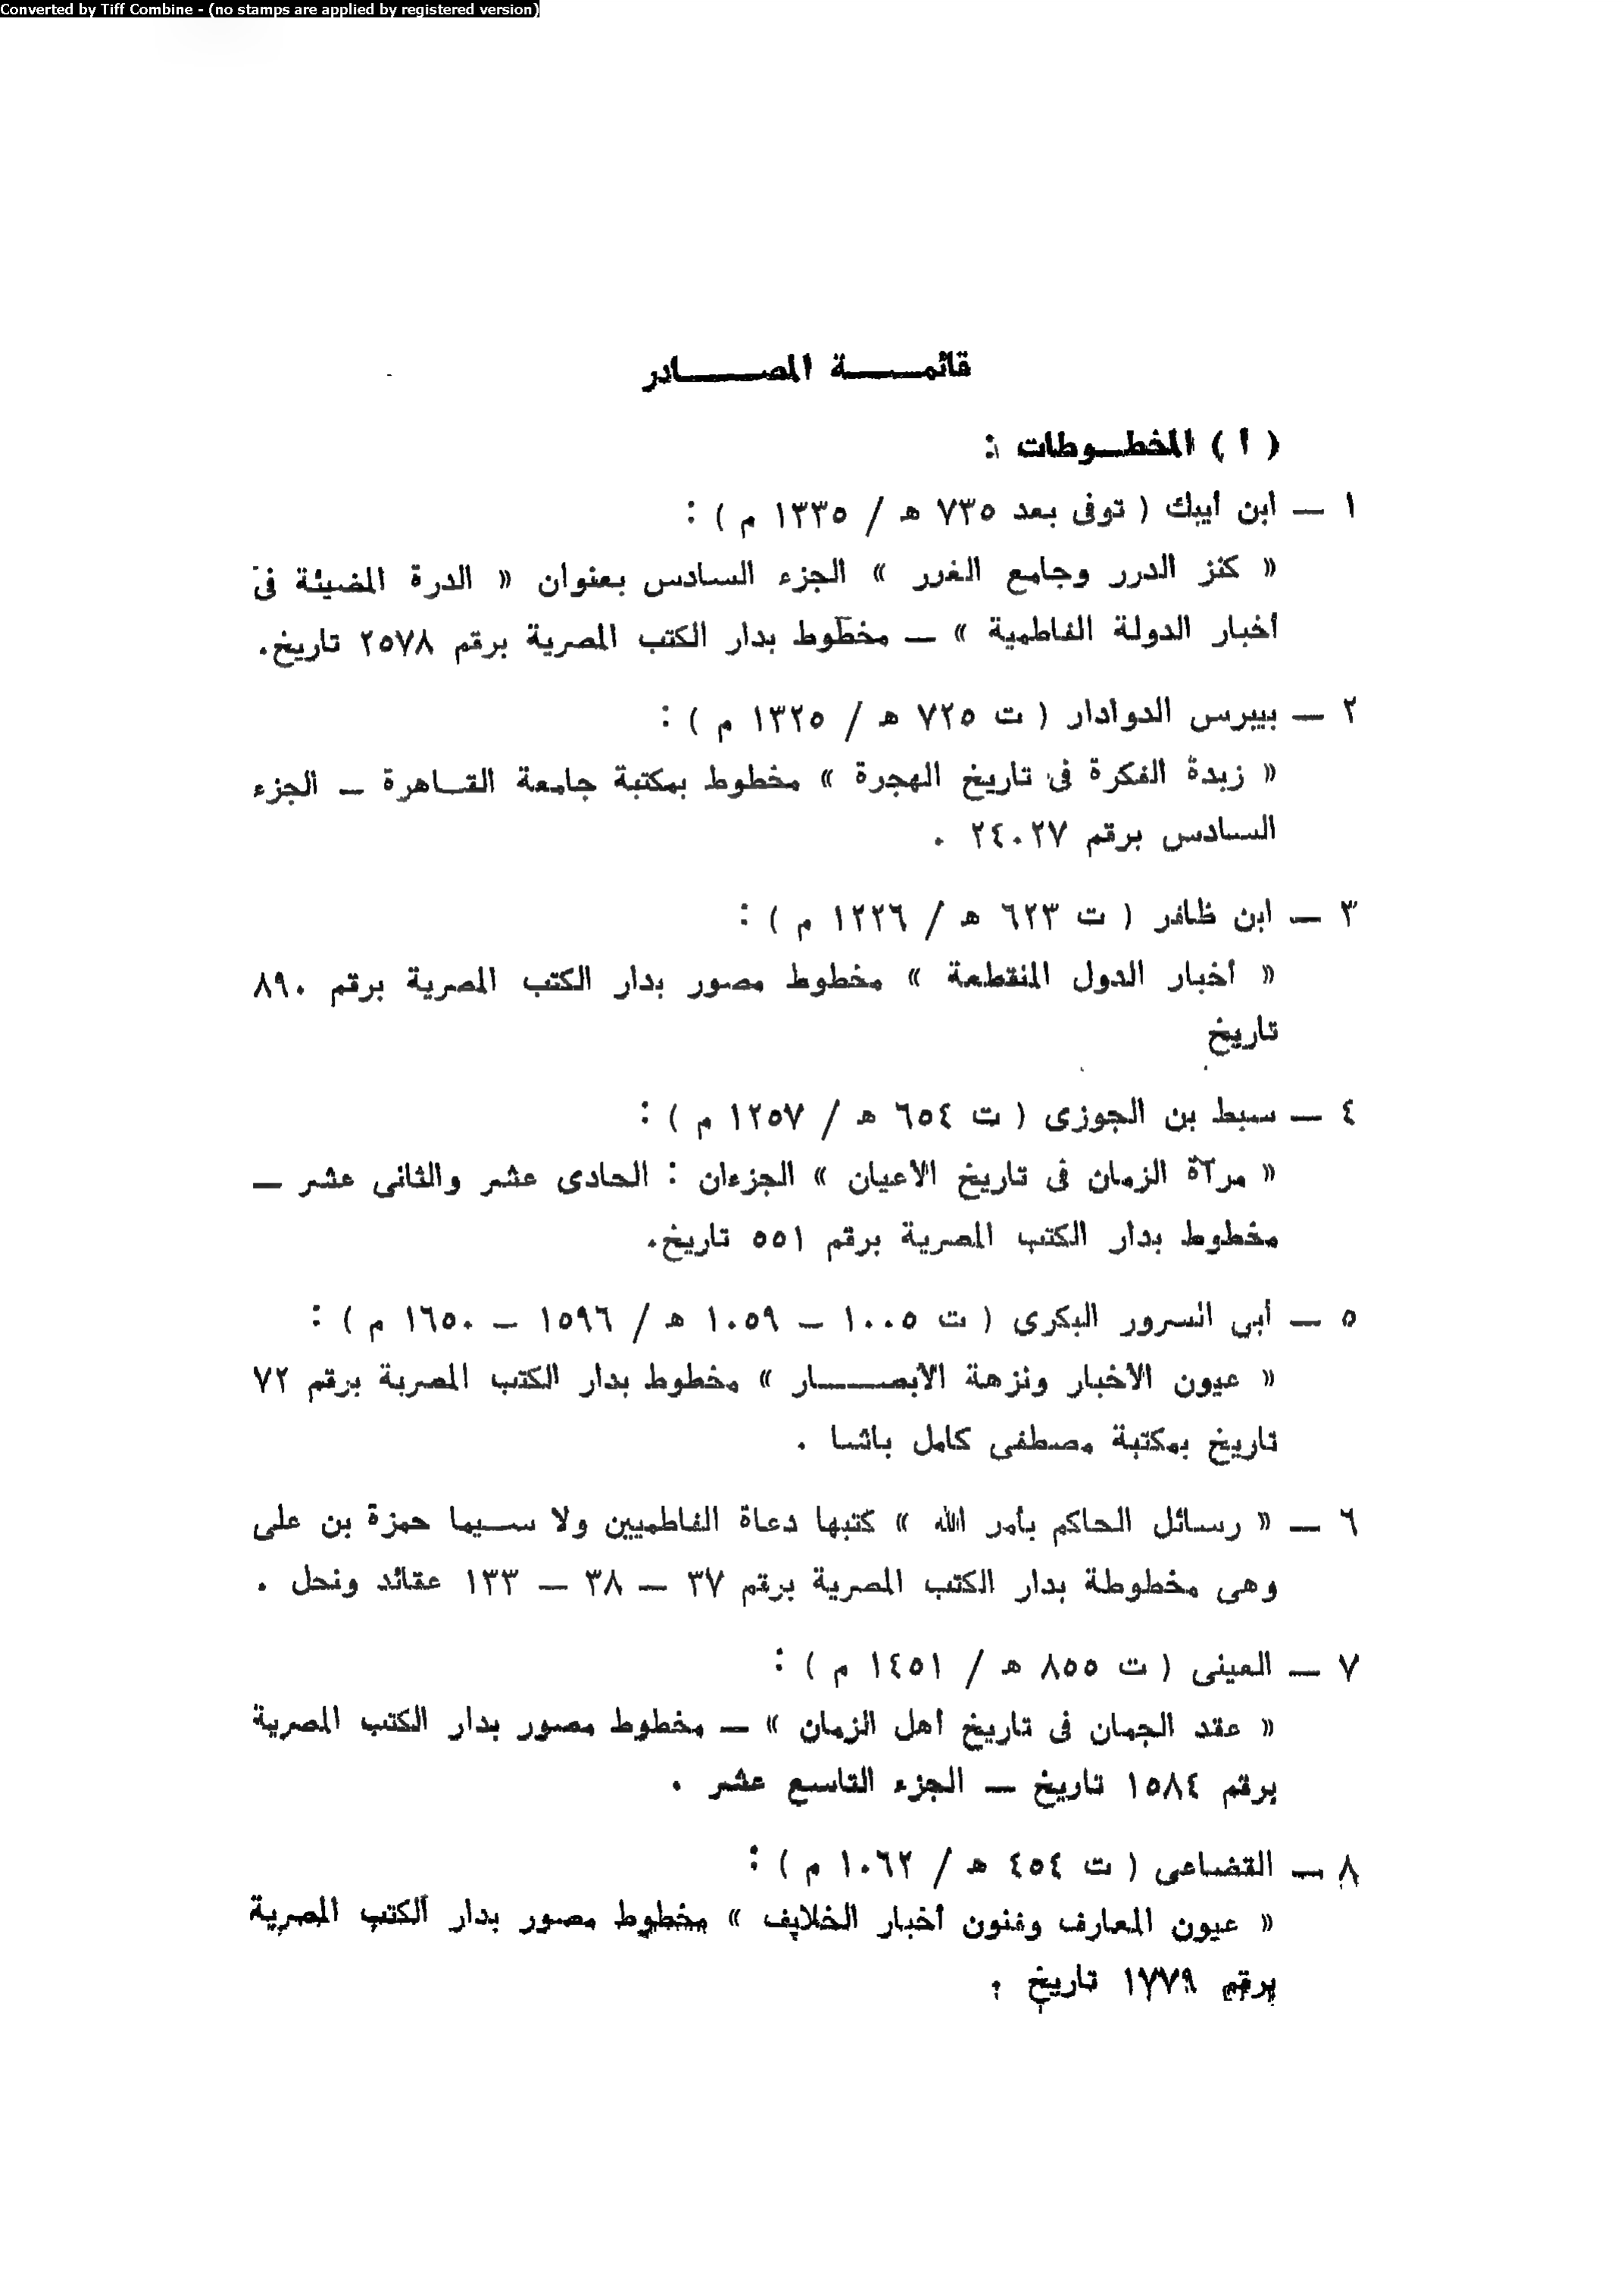 Converted by Tiff Combine - (no stamps are applied by registered version)
قائمة المصادر
( أ ) المخطوطات :
١ — ابن أيبك ( توفى بعد ٧٣٥ ه / ١٣٣٥ م ) :
« كنز الدرر وجامع الغرر » الجزء السادس بعنوان « الدرة المضيئة فى
أخبار الدولة الفاطمية » — مخطوط بدار الكتب المصرية برقم ٢٥٧٨ تاريخ.
٢ — بيبرس الدوادار ( ت ٧٢٥ ه / ١٣٢٥ م ) :
« زبدة الفكرة فى تاريخ الهجرة » مخطوط بمكتبة جامعة القاهرة — الجزء
السادس برقم ٢٤٠٢٧ .
٣ — ابن ظافر ( ت ٦٢٣ ه / ١٢٢٦ م ) :
« أخبار الدول المنقطعة » مخطوط مصور بدار الكتب المصرية برقم ٨٩٠
تاريخ
٤ — سبط بن الجوزى ( ت ٦٥٤ ه / ١٢٥٧ م ) :
« مرآة الزمان فى تاريخ الاعيان » الجزءان : الحادى عشر والثانى عشر —
مخطوط بدار الكتب المصرية برقم ٥٥١ تاريخ.
٥ — أبى السرور البكرى ( ت ١٠٠٥ — ١٠٥٩ ه / ١٥٩٦ — ١٦٥٠ م ) :
« عيون الاخبار ونزهة الابصار » مخطوط بدار الكتب المصرية برقم ٧٢
تاريخ بمكتبة مصطفى كامل باشا .
٦ — « رسائل الحاكم بأمر الله » كتبها دعاة الفاطميين ولا سيما حمزة بن على
وهى مخطوطة بدار الكتب المصرية برقم ٣٧ — ٣٨ — ١٣٣ عقائد ونحل .
٧ — العينى ( ت ٨٥٥ ه / ١٤٥١ م ) :
« عقد الجمان فى تاريخ أهل الزمان » — مخطوط مصور بدار الكتب المصرية
برقم ١٥٨٤ تاريخ — الجزء التاسع عشر .
٨ — القضاعى ( ت ٤٥٤ ه / ١٠٦٢ م ) :
« عيون المعارف وفنون أخبار الخلايف » مخطوط مصور بدار الكتب المصرية
برقم ١٧٧٩ تاريخ .